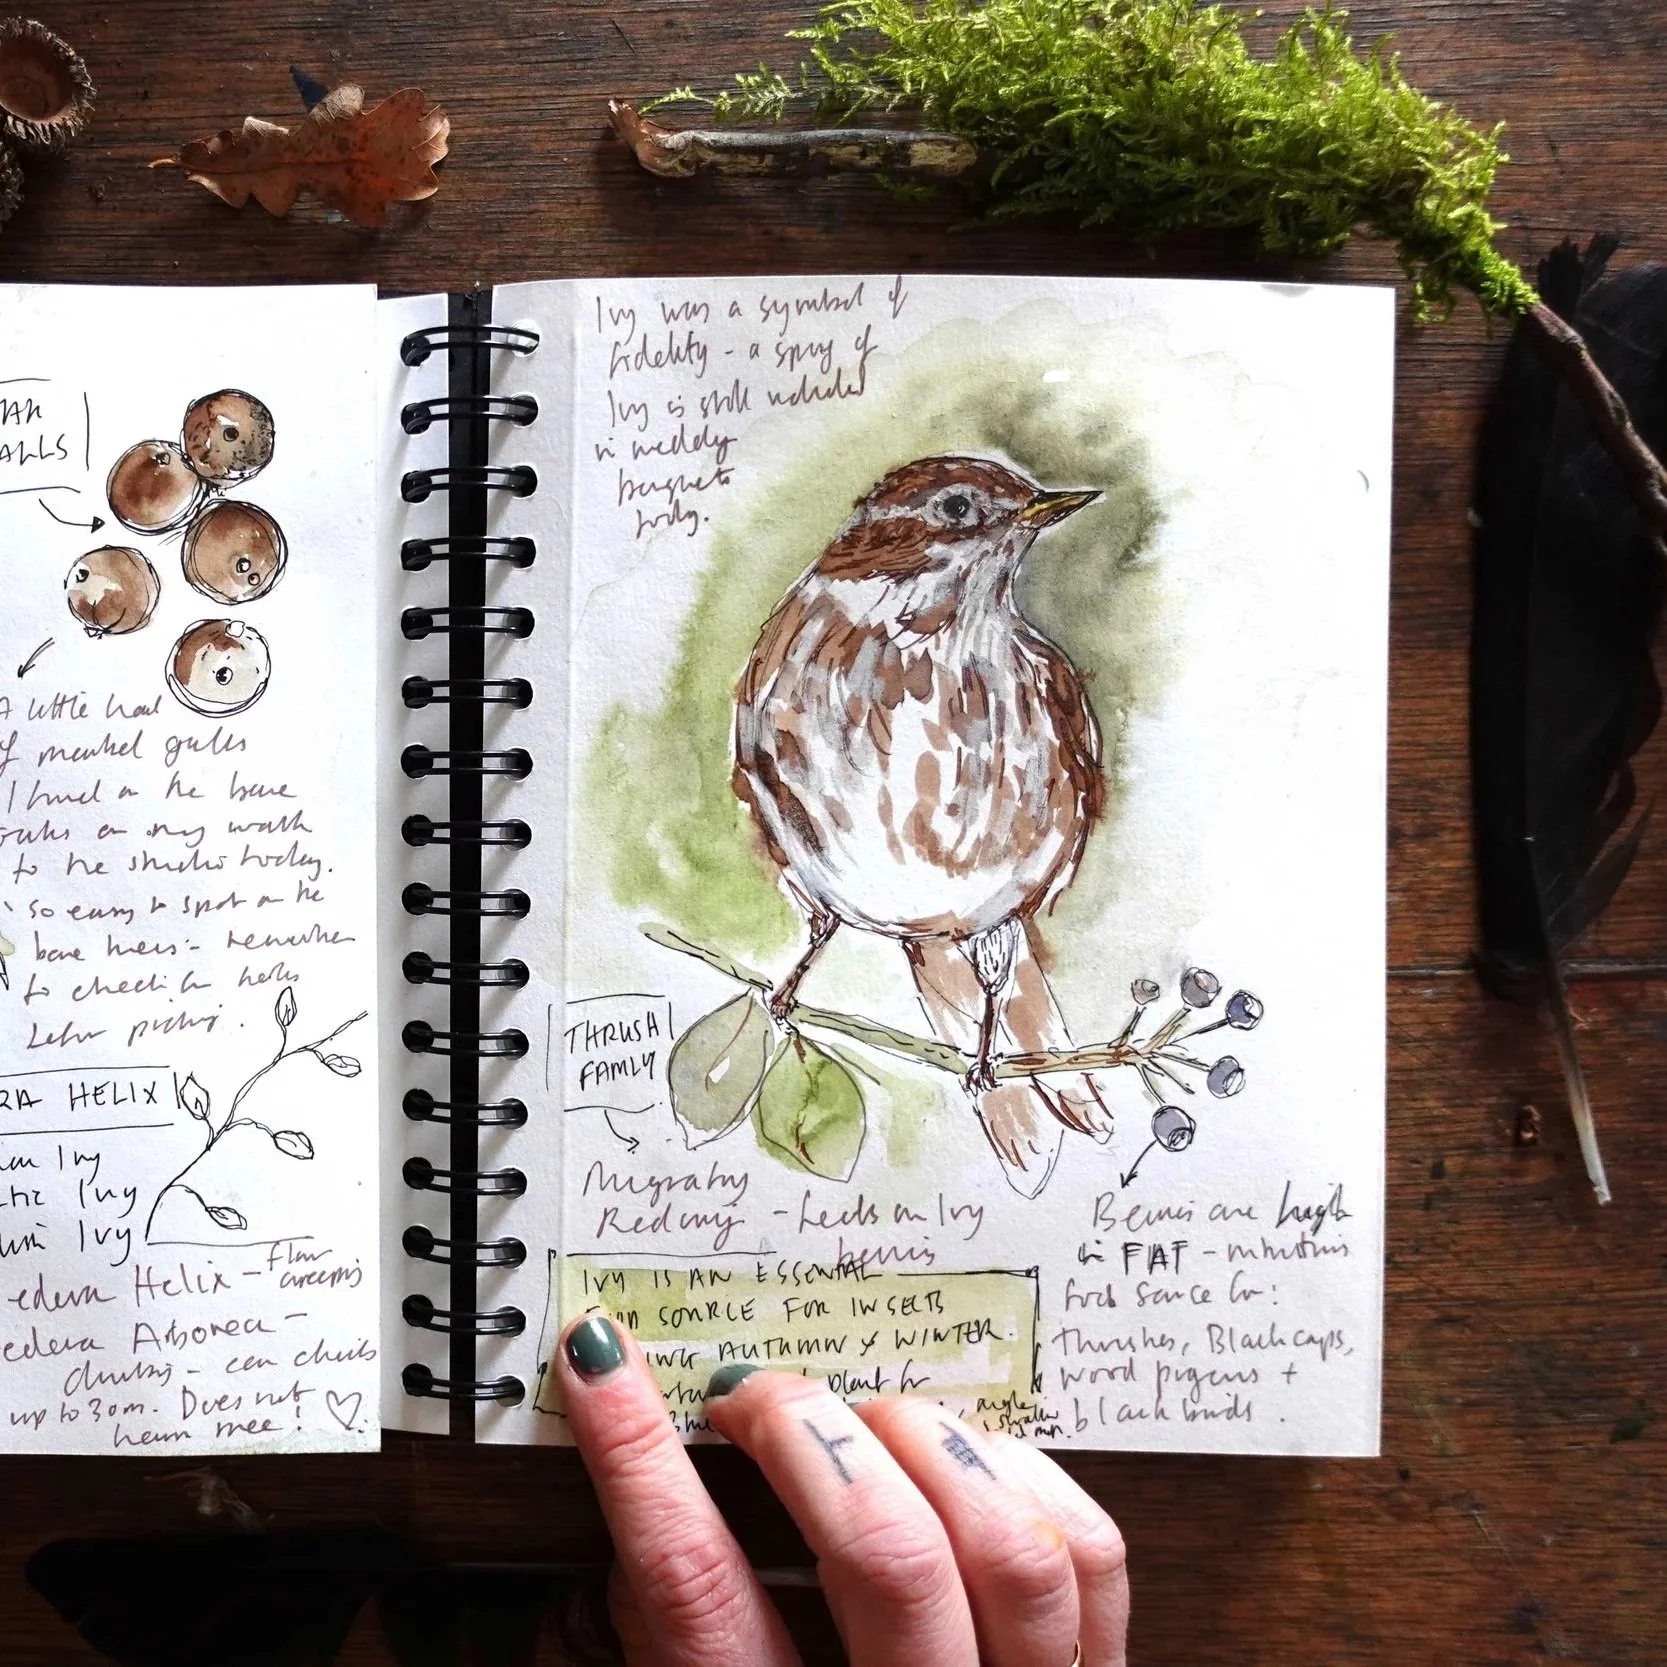 ALLS
A little haul
of marbel galls
I found on the bare
oaks on my walk
to the studio today.
so easy to spot on the
bare trees - remember
to check for holes
before picking.
RA HELIX
Ivy
Ivy
Ivy
edera Helix - floor
creeping
edera Arborea -
climbing - can climb
up to 30m. Does not
harm tree!
Ivy was a symbol of
fidelity - a sprig of
Ivy is still included
in wedding
bouquets
today.
THRUSH
FAMLY
Migratory
Redwing - feeds on Ivy
berries
IVY IS AN ESSENTIAL
SOURCE FOR INSECTS
AUTUMN & WINTER.
plant for
Berries are high
in FAT - nutritious
food source for:
Thrushes, Blackcaps,
wood pigeons +
blackbirds.